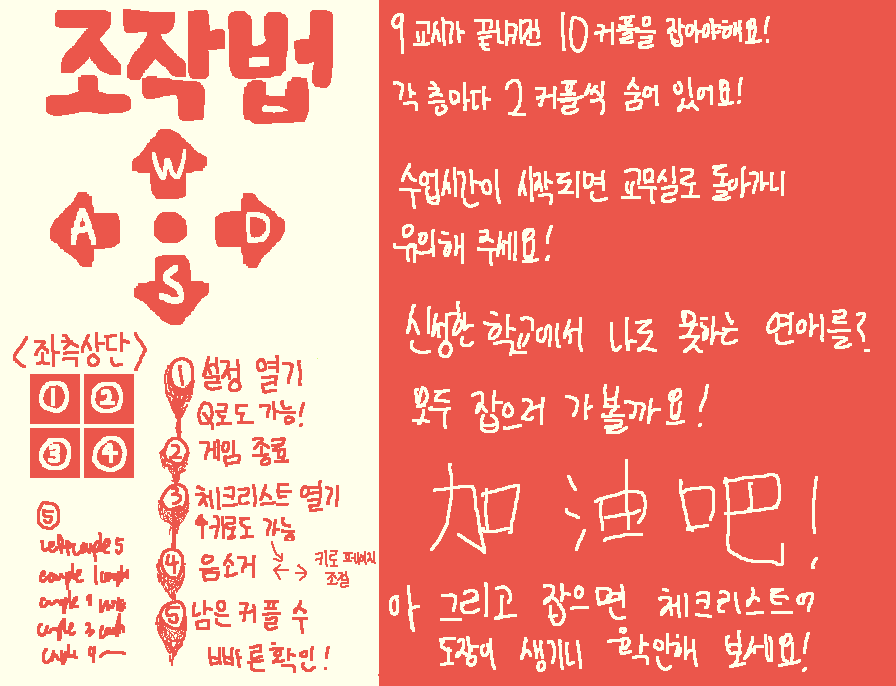 조작법
W
A
D
S
<좌측상단>
① ②
③ ④
⑤
left couple 5
couple 1 couple
couple
couple 3
① 설정 열기
Q로도 가능!
② 게임 종료
③ 체크리스트 열기
↑키로도 가능
④ 음소거
← → 키로 페이지 조절
⑤ 남은 커플 수
빠른확인!
9교시가 끝나기전 10커플을 잡아야해요!
각 층마다 2커플씩 숨어 있어요!
수업시간이 시작되면 교무실로 돌아가니
유의해 주세요!
신성한 학교에서 나도 못하는 연애를?
모두 잡으러 가볼까요!
加油吧!
아 그리고 잡으면 체크리스트에
도장이 생기니 확인해 보세요!